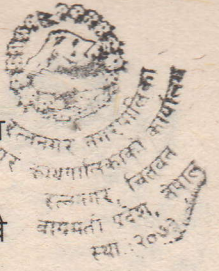 रत्ननगर नगरपालिका
नगर कार्यपालिकाको कार्यालय
रत्ननगर, चितवन
बागमती प्रदेश, नेपाल
स्था. २०५३